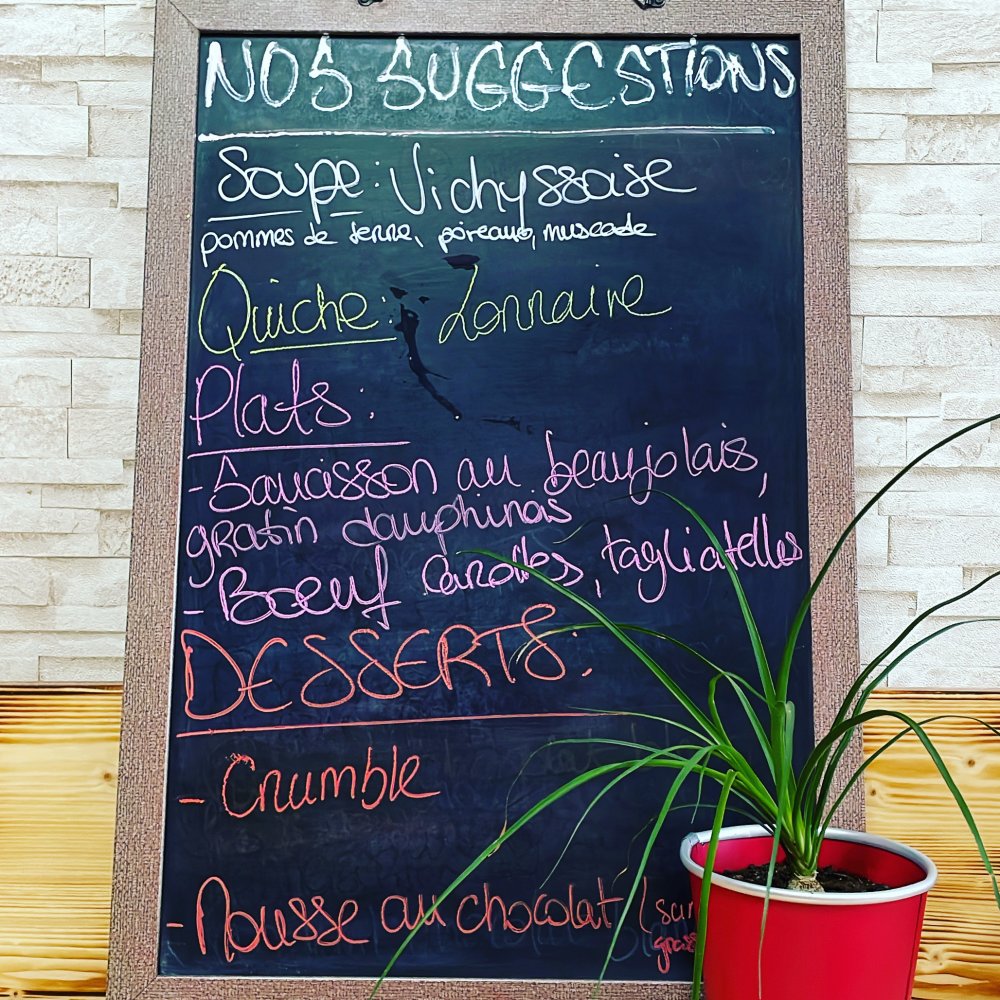 NOS SUGGESTIONS
Soupe : Vichyssoise
pommes de terre, poireaux, muscade
Quiche : Lorraine
Plats :
- Saucisson au beaujolais,
gratin dauphinois
- Boeuf carottes, tagliatelles
DESSERTS :
- Crumble
- Mousse au chocolat (